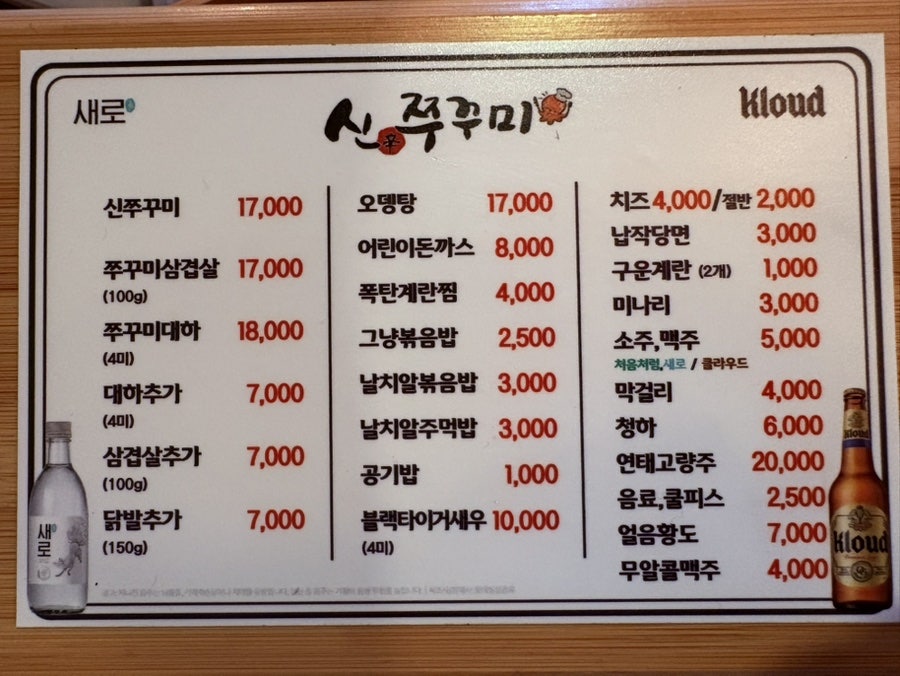 새로
신쭈꾸미
Kloud
신쭈꾸미 17,000
쭈꾸미삼겹살 17,000
(100g)
쭈꾸미대하 18,000
(4미)
대하추가 7,000
(4미)
삼겹살추가 7,000
(100g)
닭발추가 7,000
(150g)
오뎅탕 17,000
어린이돈까스 8,000
폭탄계란찜 4,000
그냥볶음밥 2,500
날치알볶음밥 3,000
날치알주먹밥 3,000
공기밥 1,000
블랙타이거새우 10,000
(4미)
치즈 4,000/절반 2,000
납작당면 3,000
구운계란 (2개) 1,000
미나리 3,000
소주,맥주 5,000
처음처럼,새로 / 클라우드
막걸리 4,000
청하 6,000
연태고량주 20,000
음료,쿨피스 2,500
얼음황도 7,000
무알콜맥주 4,000
새로
Kloud